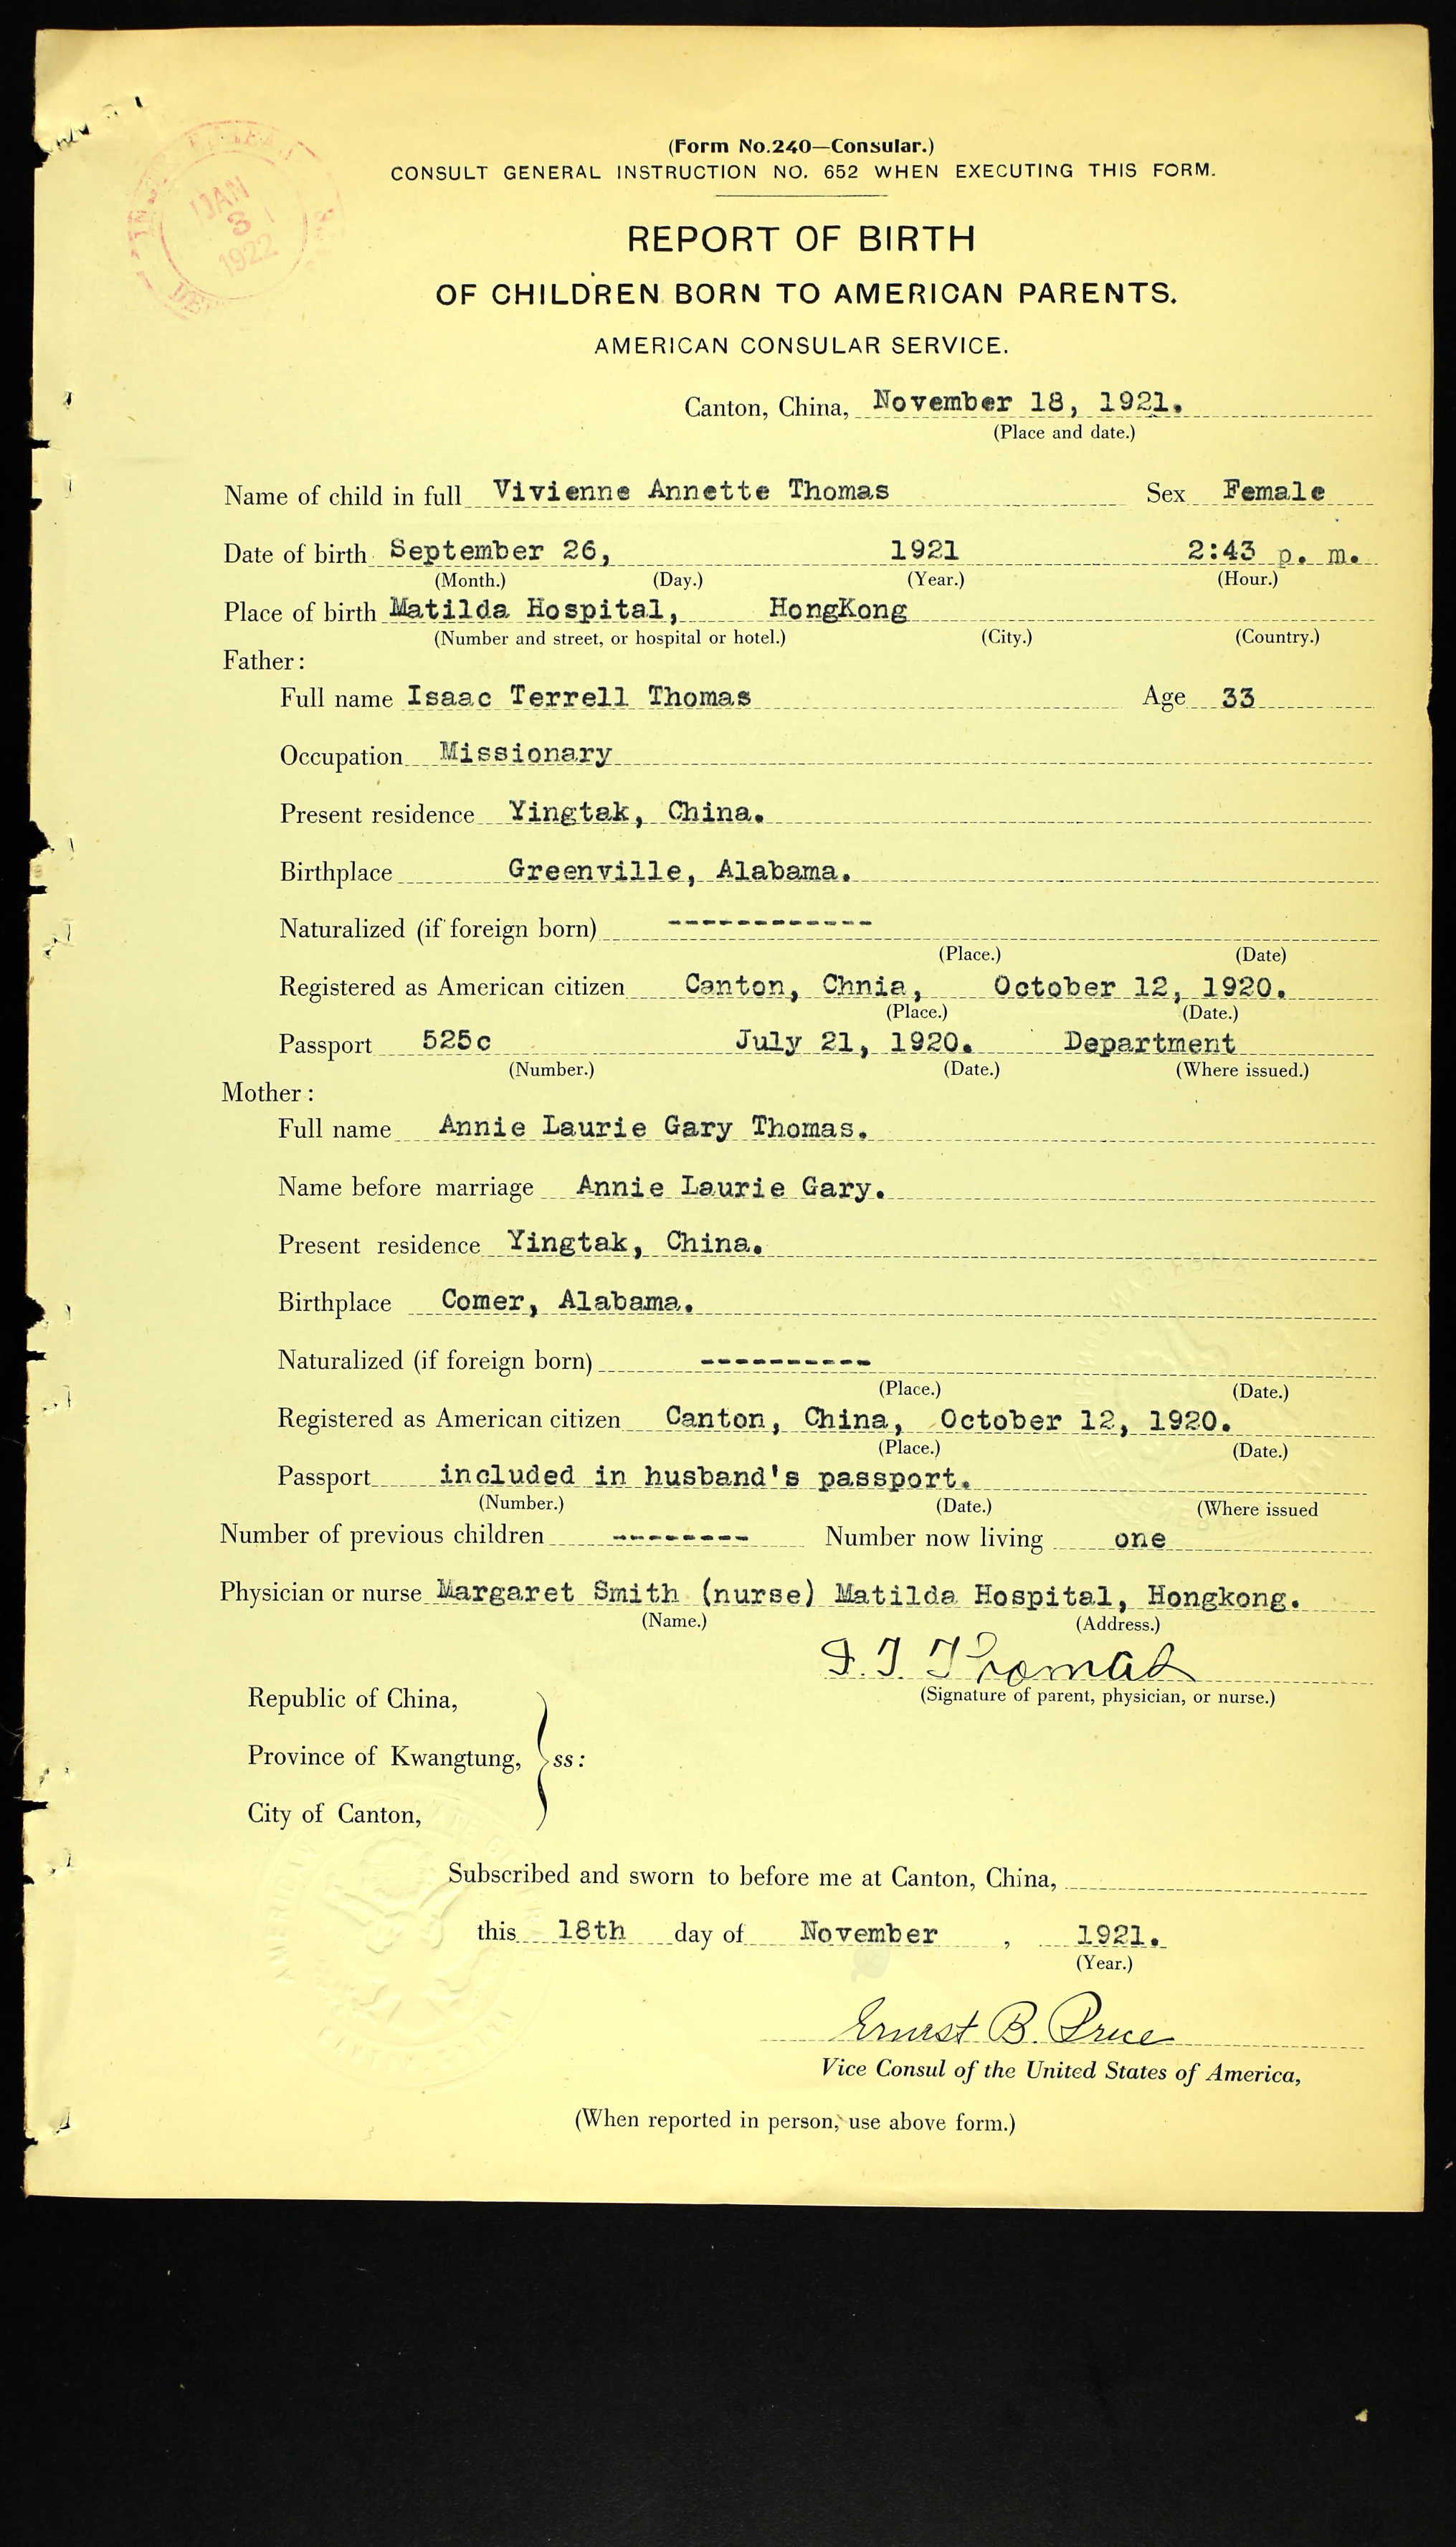 JAN
3
1922
(Form No.240—Consular.)
CONSULT GENERAL INSTRUCTION NO. 652 WHEN EXECUTING THIS FORM.
REPORT OF BIRTH
OF CHILDREN BORN TO AMERICAN PARENTS.
AMERICAN CONSULAR SERVICE.
Canton, China, November 18, 1921.
(Place and date.)
Name of child in full Vivienne Annette Thomas Sex Female
Date of birth September 26, 1921 2:43 p. m.
(Month.) (Day.) (Year.) (Hour.)
Place of birth Matilda Hospital, HongKong
(Number and street, or hospital or hotel.) (City.) (Country.)
Father:
Full name Isaac Terrell Thomas Age 33
Occupation Missionary
Present residence Yingtak, China.
Birthplace Greenville, Alabama.
Naturalized (if foreign born) ------------
(Place.) (Date)
Registered as American citizen Canton, Chnia, October 12, 1920.
(Place.) (Date.)
Passport 525c July 21, 1920. Department
(Number.) (Date.) (Where issued.)
Mother:
Full name Annie Laurie Gary Thomas.
Name before marriage Annie Laurie Gary.
Present residence Yingtak, China.
Birthplace Comer, Alabama.
Naturalized (if foreign born) ----------
(Place.) (Date.)
Registered as American citizen Canton, China, October 12, 1920.
(Place.) (Date.)
Passport included in husband's passport.
(Number.) (Date.) (Where issued
Number of previous children -------- Number now living one
Physician or nurse Margaret Smith (nurse) Matilda Hospital, Hongkong.
(Name.) (Address.)
I. T. Thomas
(Signature of parent, physician, or nurse.)
Republic of China,
Province of Kwangtung, ss:
City of Canton,
Subscribed and sworn to before me at Canton, China,
this 18th day of November , 1921.
(Year.)
Ernest B. Price
Vice Consul of the United States of America,
(When reported in person, use above form.)